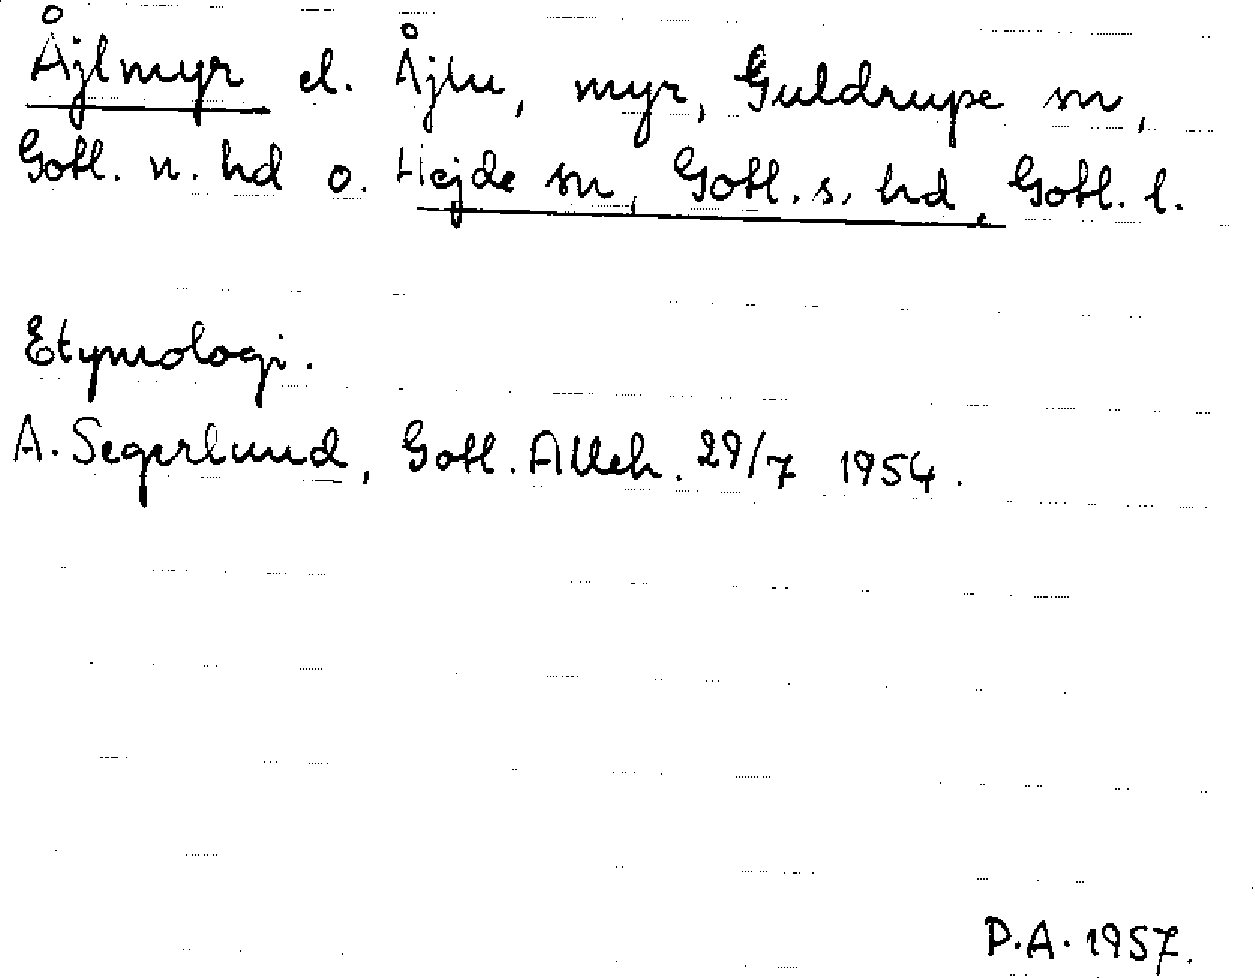 Åjlmyr el. Åjlu, myr, Guldrupe sn,
Gotl. n. hd o. Hejde sn, Gotl. s. hd, Gotl. l.
Etymologi.
A. Segerlund, Gotl. Alleh. 29/7 1954.
P.A. 1957.